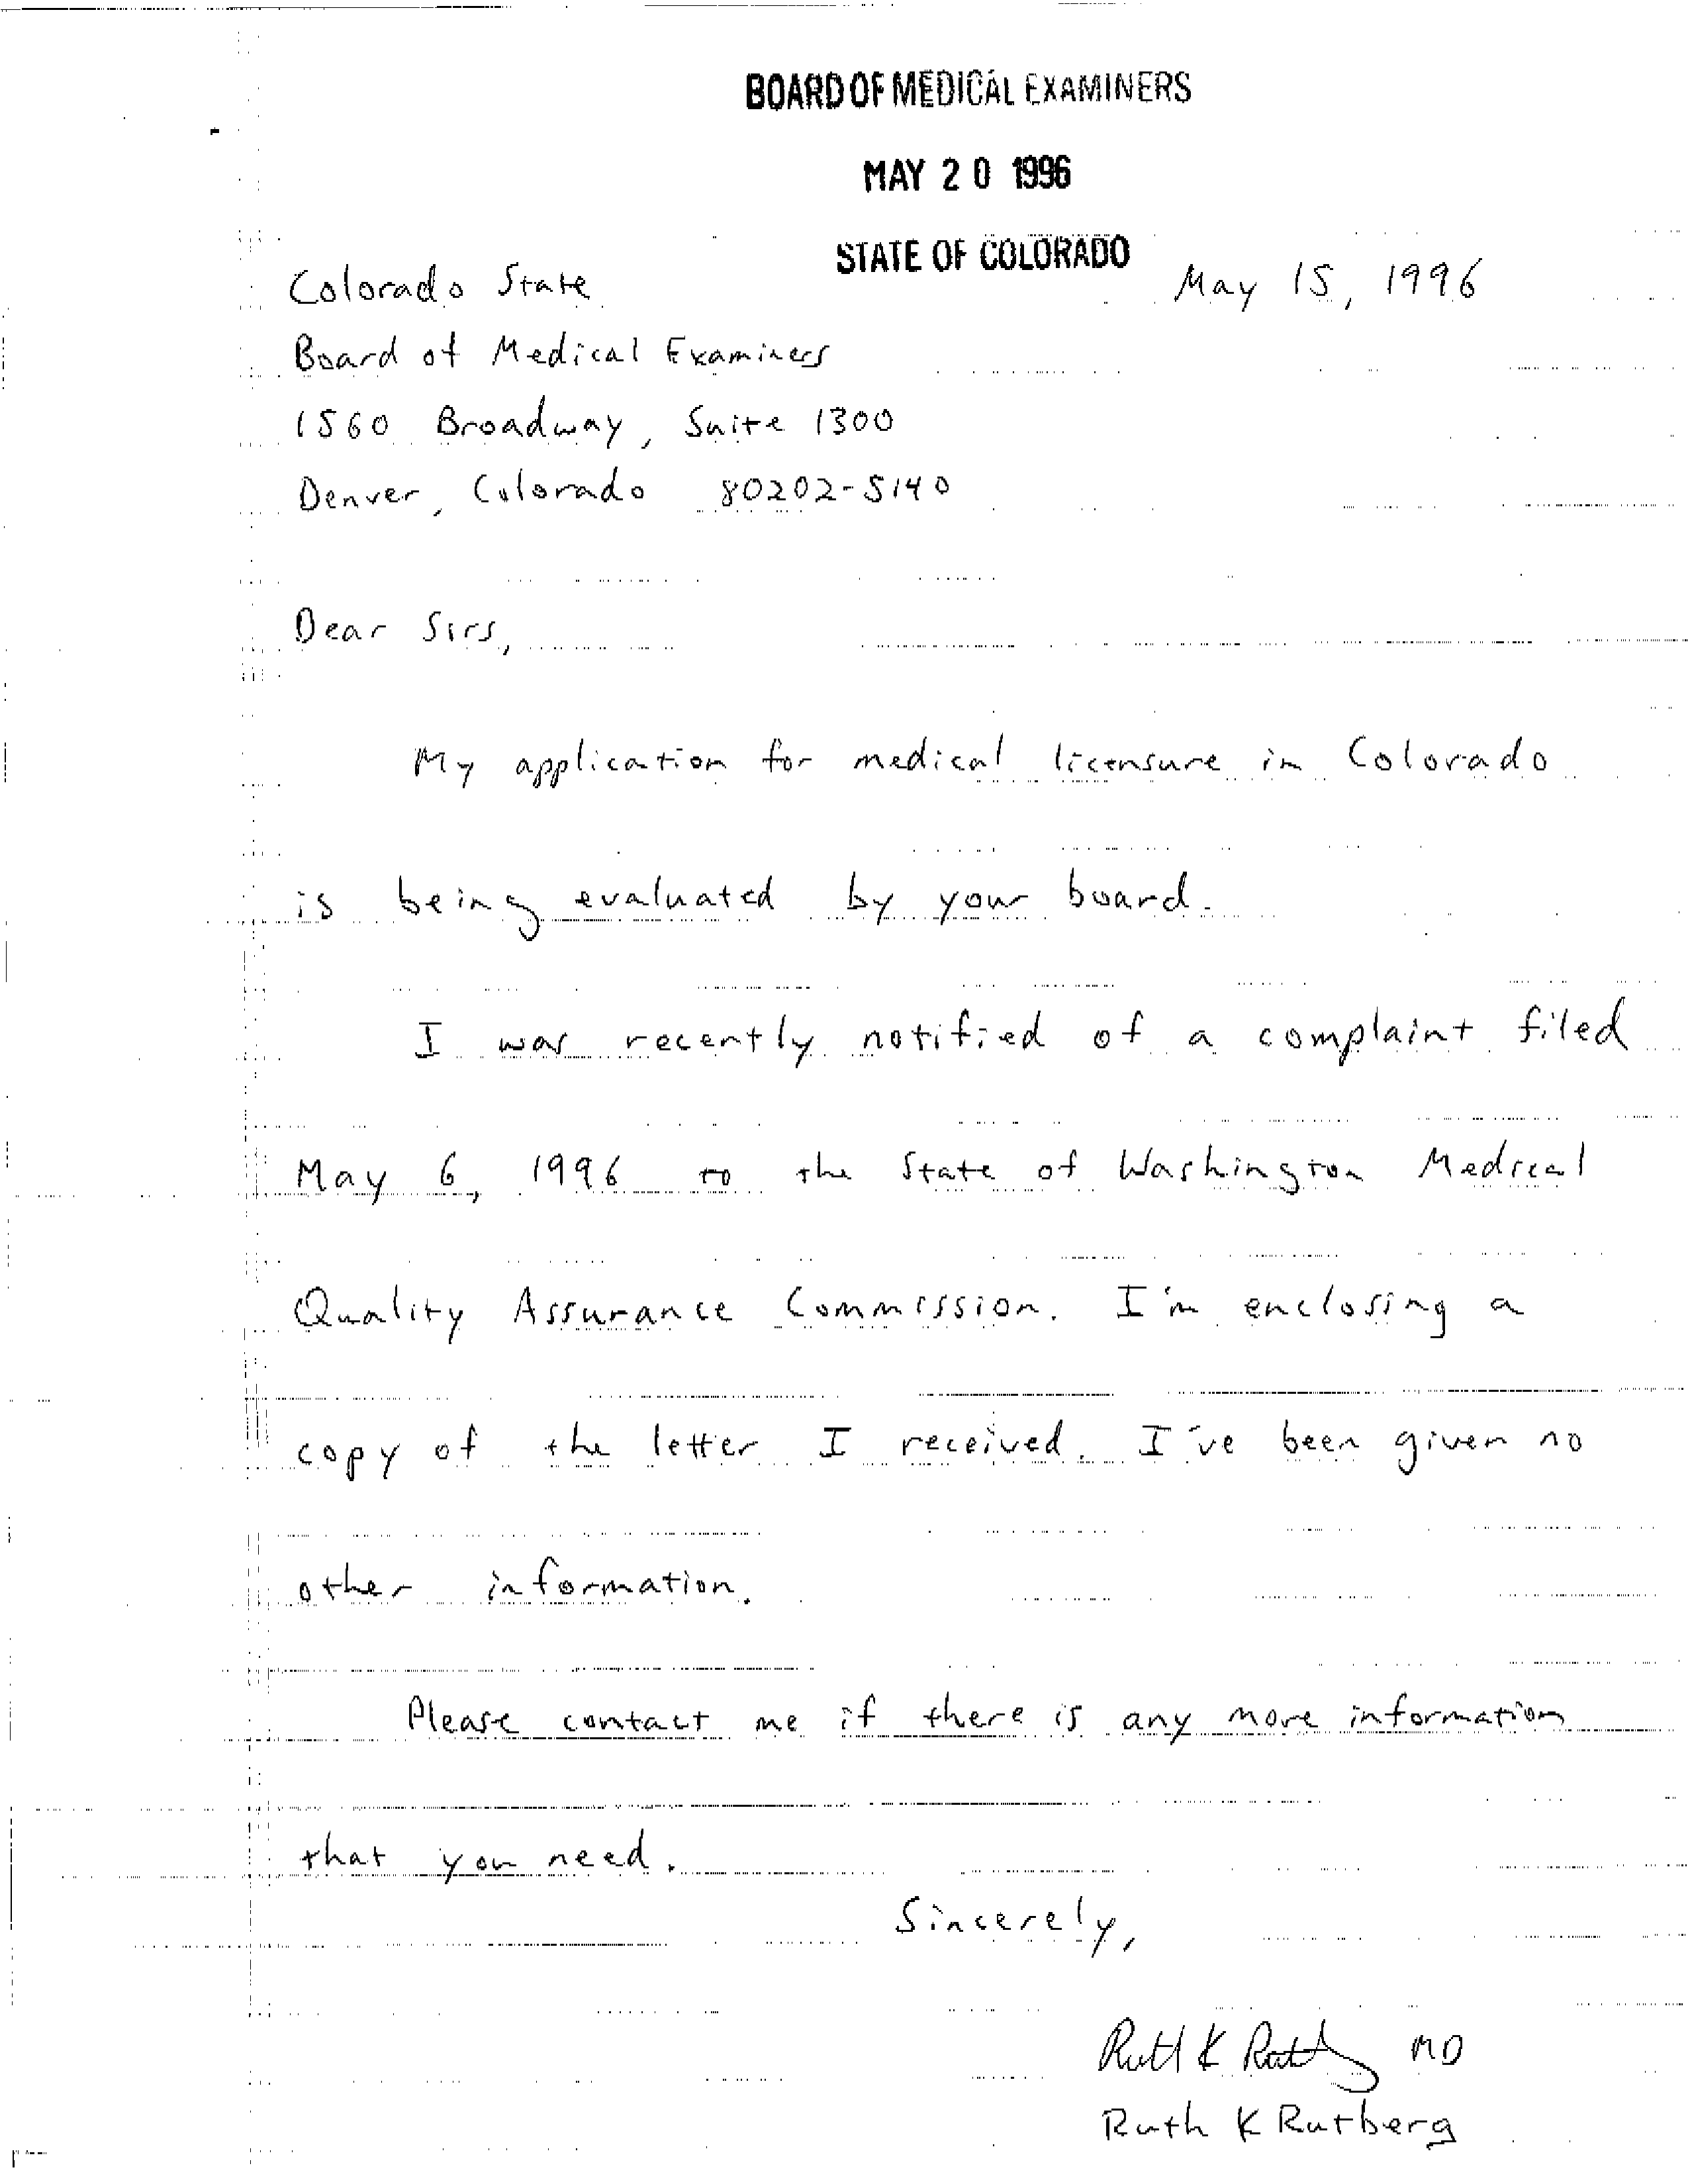 BOARD OF MEDICAL EXAMINERS
MAY 20 1996
STATE OF COLORADO
May 15, 1996
Colorado State
Board of Medical Examiners
1560 Broadway, Suite 1300
Denver, Colorado 80202-5140
Dear Sirs,
My application for medical licensure in Colorado
is being evaluated by your board.
I was recently notified of a complaint filed
May 6, 1996 to the State of Washington Medical
Quality Assurance Commission. I'm enclosing a
copy of the letter I received. I've been given no
other information.
Please contact me if there is any more information
that you need.
Sincerely,
Ruth K Rutberg MD
Ruth K Rutberg